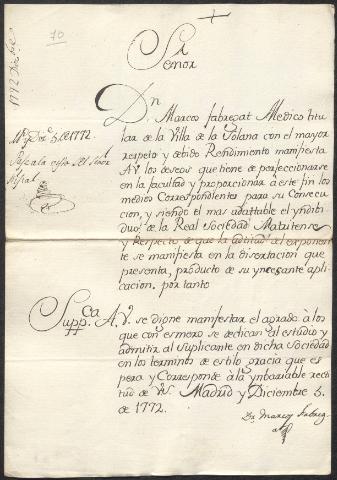 70
1772 Diz.re
Sr
Senor
Dn. Marcos fabregat Medico titu-
lar de la Villa de la Solana con el mayor
respeto y debido Rendimiento manifiesta
AV. los deseos que tiene de perfeccionarse
en la facultad y proporcionar à este fin los
medios Correspondientes para su Consecu-
cion, y siendo el mas adattable el ynditi-
duo, de la Real Sociedad Matritense
y Respecto de que la aptitud del exponen-
te se manifiesta en la Disertacion que
presenta, producto de su yncesante apli-
cacion, por tanto
Md. y Dize. 5. de 1772.
Pase a la
fiscal
Suppca. A.V. se digne manifestar el agrado à los
que con esmero se dedican al estudio y
admitir al suplicante en dicha Sociedad
en los terminos de estilo, gracia que es-
pera y Corresponde à la ynbariable recti-
tud de V.S. Madrid y Diciembre 5.
de 1772.
Dn. Marcos Fabreg-
at